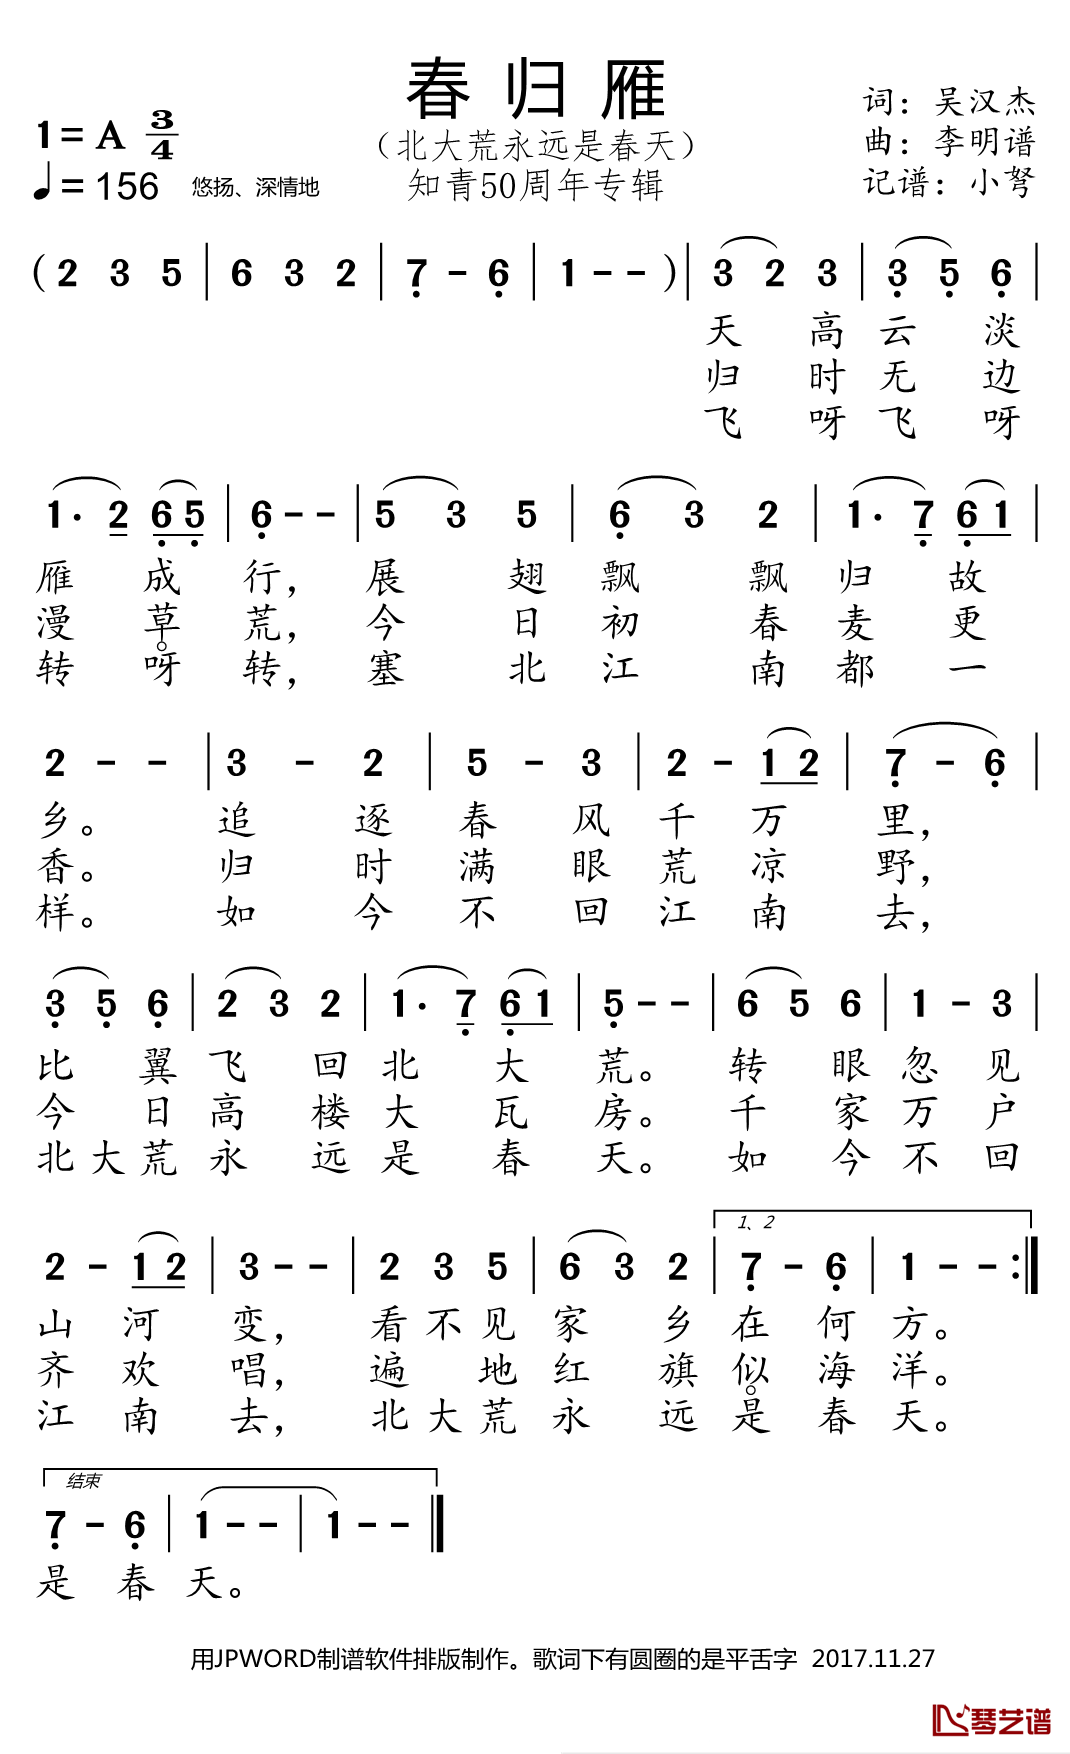 春归雁
（北大荒永远是春天）
知青50周年专辑
1=A 3/4
♩=156 悠扬、深情地
词：吴汉杰
曲：李明谱
记谱：小弩
( 2 3 5 | 6 3 2 | 7 - 6 | 1 - - ) | 3 2 3 | 3 5 6 |
天 高 云 淡
归 时 无 边
飞 呀 飞 呀
1· 2 6 5 | 6 - - | 5 3 5 | 6 3 2 | 1· 7 6 1 |
雁 成 行， 展 翅 飘 飘 归 故
漫 草 荒， 今 日 初 春 麦 更
转 呀 转， 塞 北 江 南 都 一
2 - - | 3 - 2 | 5 - 3 | 2 - 1 2 | 7 - 6 |
乡。 追 逐 春 风 千 万 里，
香。 归 时 满 眼 荒 凉 野，
样。 如 今 不 回 江 南 去，
3 5 6 | 2 3 2 | 1· 7 6 1 | 5 - - | 6 5 6 | 1 - 3 |
比 翼 飞 回 北 大 荒。 转 眼 忽 见
今 日 高 楼 大 瓦 房。 千 家 万 户
北 大 荒 永 远 是 春 天。 如 今 不 回
1、2
2 - 1 2 | 3 - - | 2 3 5 | 6 3 2 | 7 - 6 | 1 - - :|
山 河 变， 看 不 见 家 乡 在 何 方。
齐 欢 唱， 遍 地 红 旗 似 海 洋。
江 南 去， 北 大 荒 永 远 是 春 天。
结束
7 - 6 | 1 - - | 1 - - ‖
是 春 天。
用JPWORD制谱软件排版制作。歌词下有圆圈的是平舌字 2017.11.27
琴艺谱